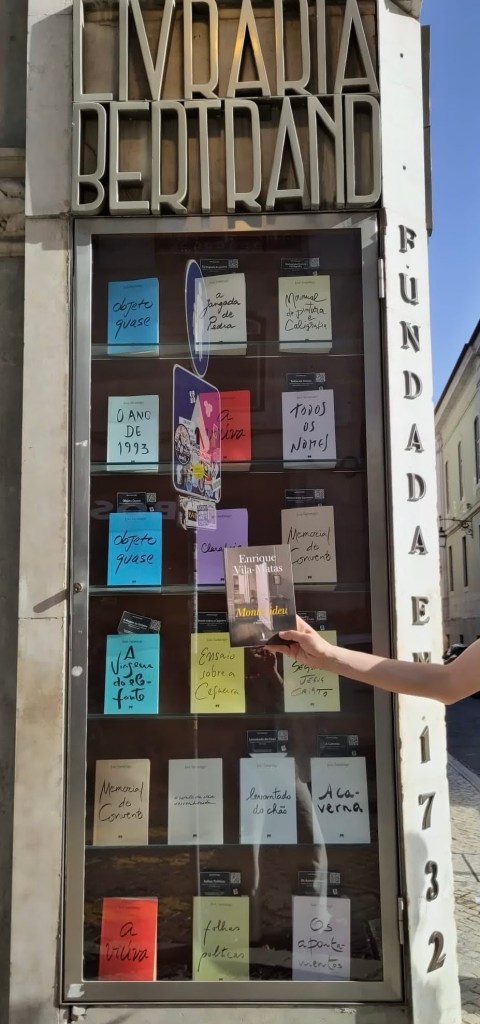 LIVRARIA
BERTRAND
FUNDADA EM 1732
objeto
quase
a
jangada
de
Pedra
Manual
de pintura
e
Caligrafia
O ANO
DE
1993
a
viúva
TODOS
OS
NOMES
objeto
quase
Claraboia
Memorial
do
Convento
Enrique
Vila-Matas
Montevideu
A
Viagem
do ele-
fante
Ensaio
sobre a
Cegueira
Memorial
do
Convento
levantado
do chão
A ca-
verna
a
viúva
folhas
políticas
Os
aponta-
mentos